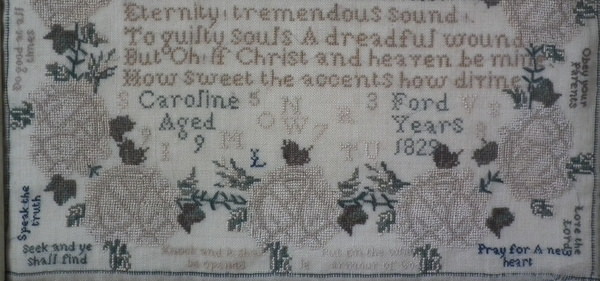 Eternity! tremendous sound.
To guilty souls A dreadful wound
But Oh! if Christ and heaven be min
How sweet the accents how divine
Caroline Ford
Aged 9 Years
1829
Do good at all
times
Obey your
Parents
Speak the
truth
Seek and ye
shall find
Knock and it sha
be opened
Put on the
armour of Go
Pray for A new
heart
Love the
Lord